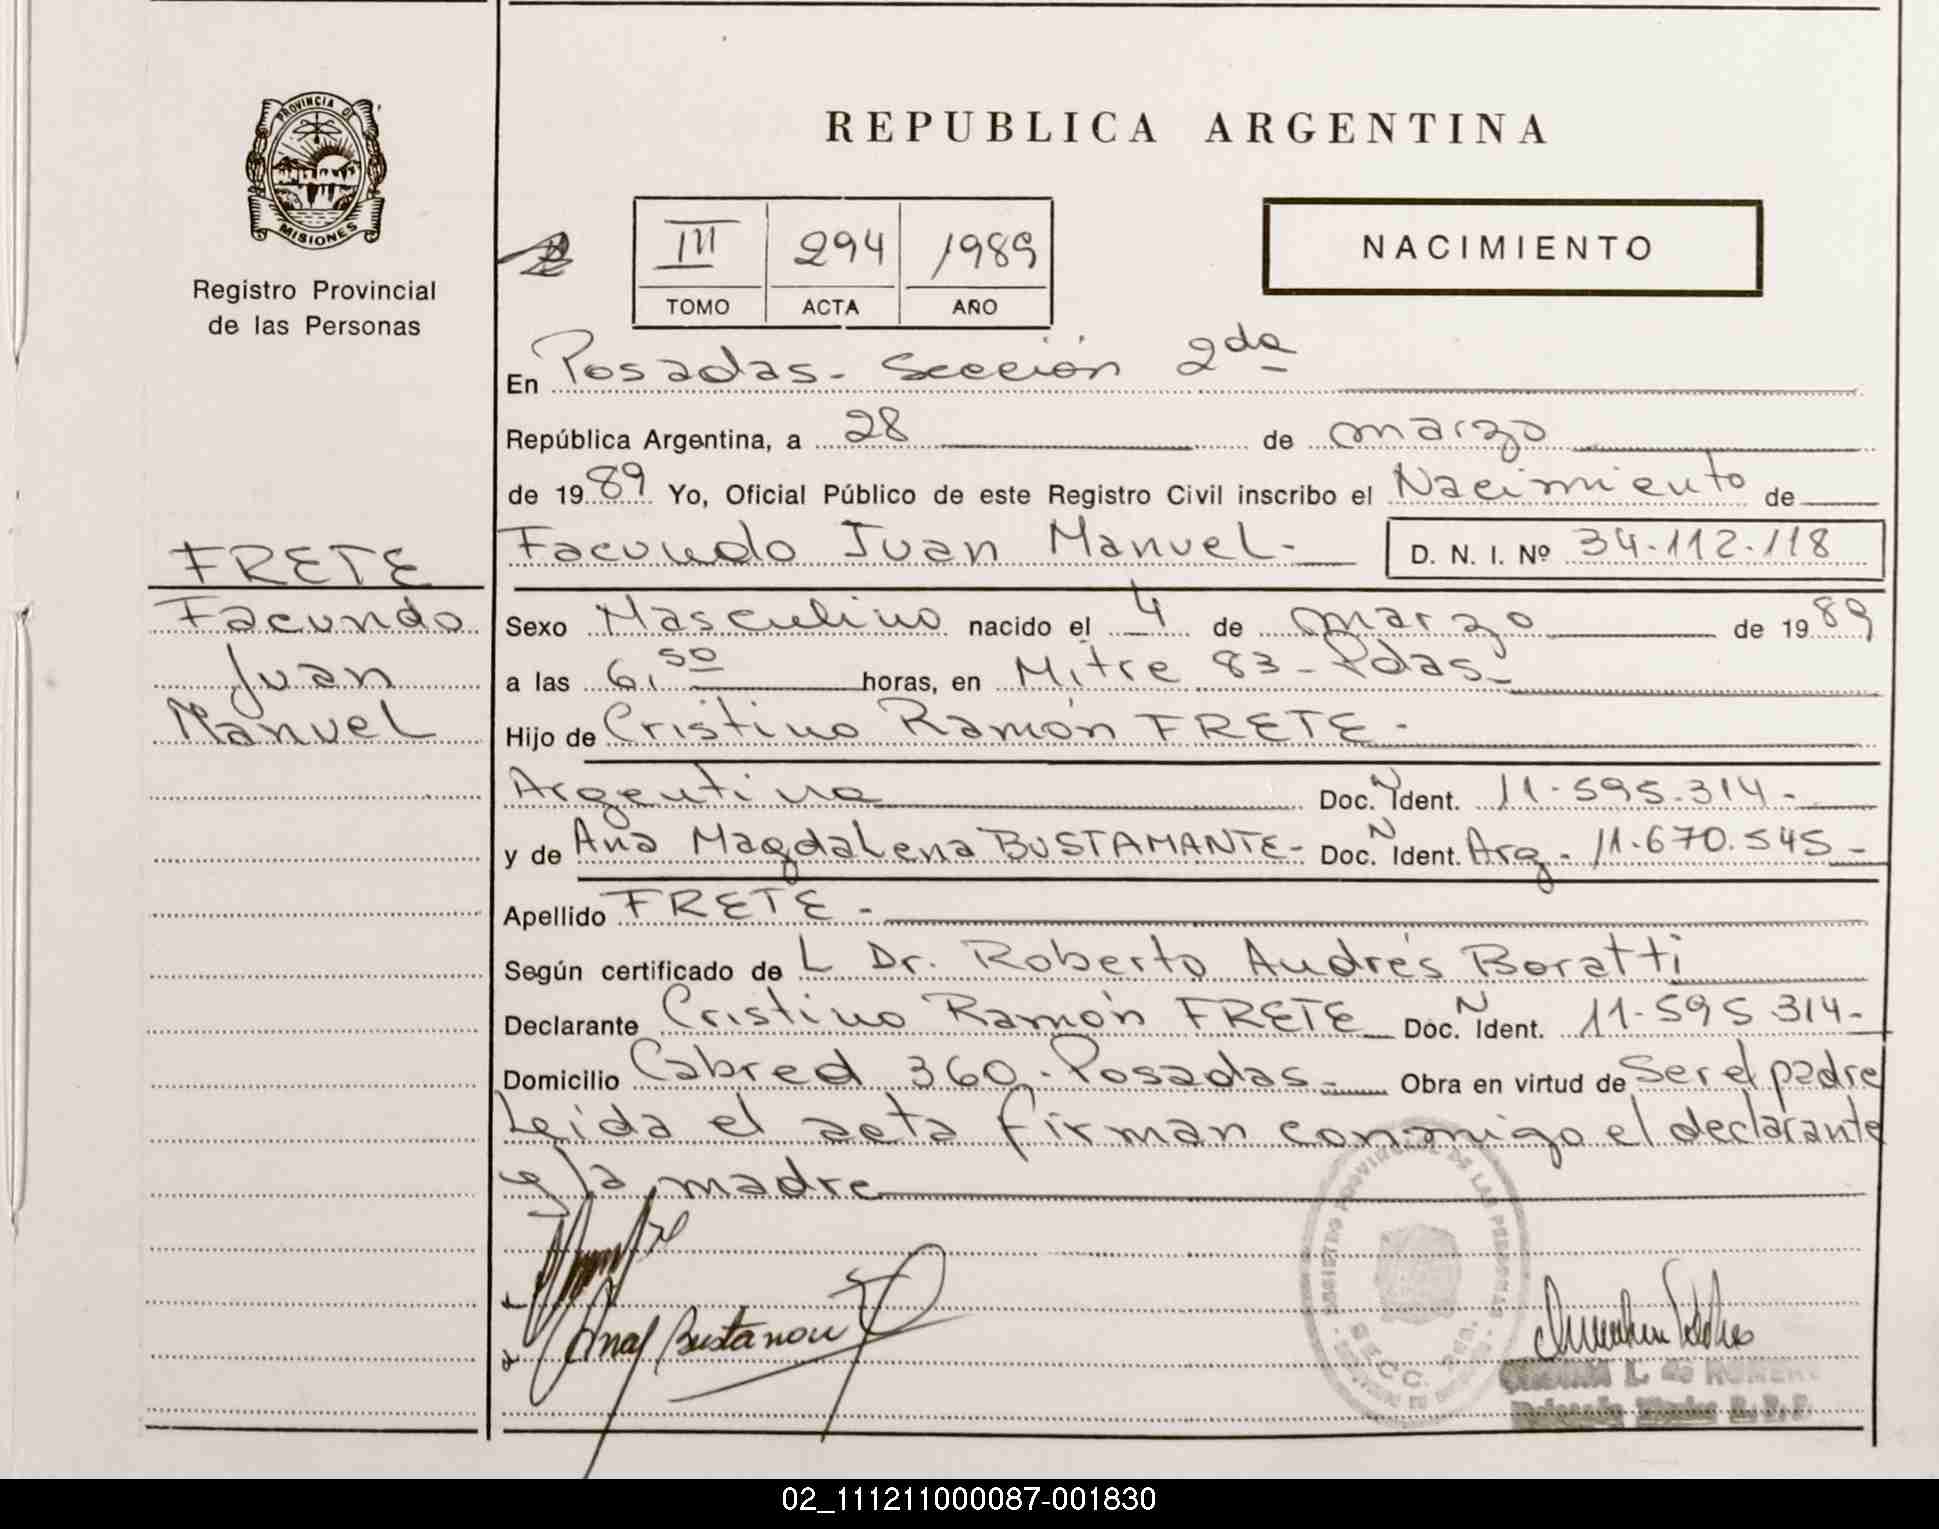 PROVINCIA DE
MISIONES
Registro Provincial
de las Personas
REPUBLICA ARGENTINA
III 294 1989
TOMO ACTA AÑO
NACIMIENTO
En Posadas- Sección 2da
República Argentina, a 28 de marzo
de 1989 Yo, Oficial Público de este Registro Civil inscribo el Nacimiento de
Facundo Juan Manuel- D. N. I. Nº 34.112.118
FRETE
Facundo
Juan
Manuel
Sexo Masculino nacido el 4 de marzo de 1989
a las 6,50 horas, en Mitre 83- Pdas.-
Hijo de Cristino Ramón FRETE-
Argentina Doc. N Ident. 11.595.314-
y de Ana Magdalena BUSTAMANTE- Doc. N Ident. Arg- 11.670.545-
Apellido FRETE-
Según certificado de L Dr. Roberto Andrés Boratti
Declarante Cristino Ramón FRETE Doc. N Ident. 11.595.314-
Domicilio Cabred 360.-Posadas- Obra en virtud de Ser el padre
Leida el acta firman conmigo el declarante
y la madre
REGISTRO PROVINCIAL DE LAS PERSONAS
SECC. 2da.
L. de ROMERO
02_111211000087-001830